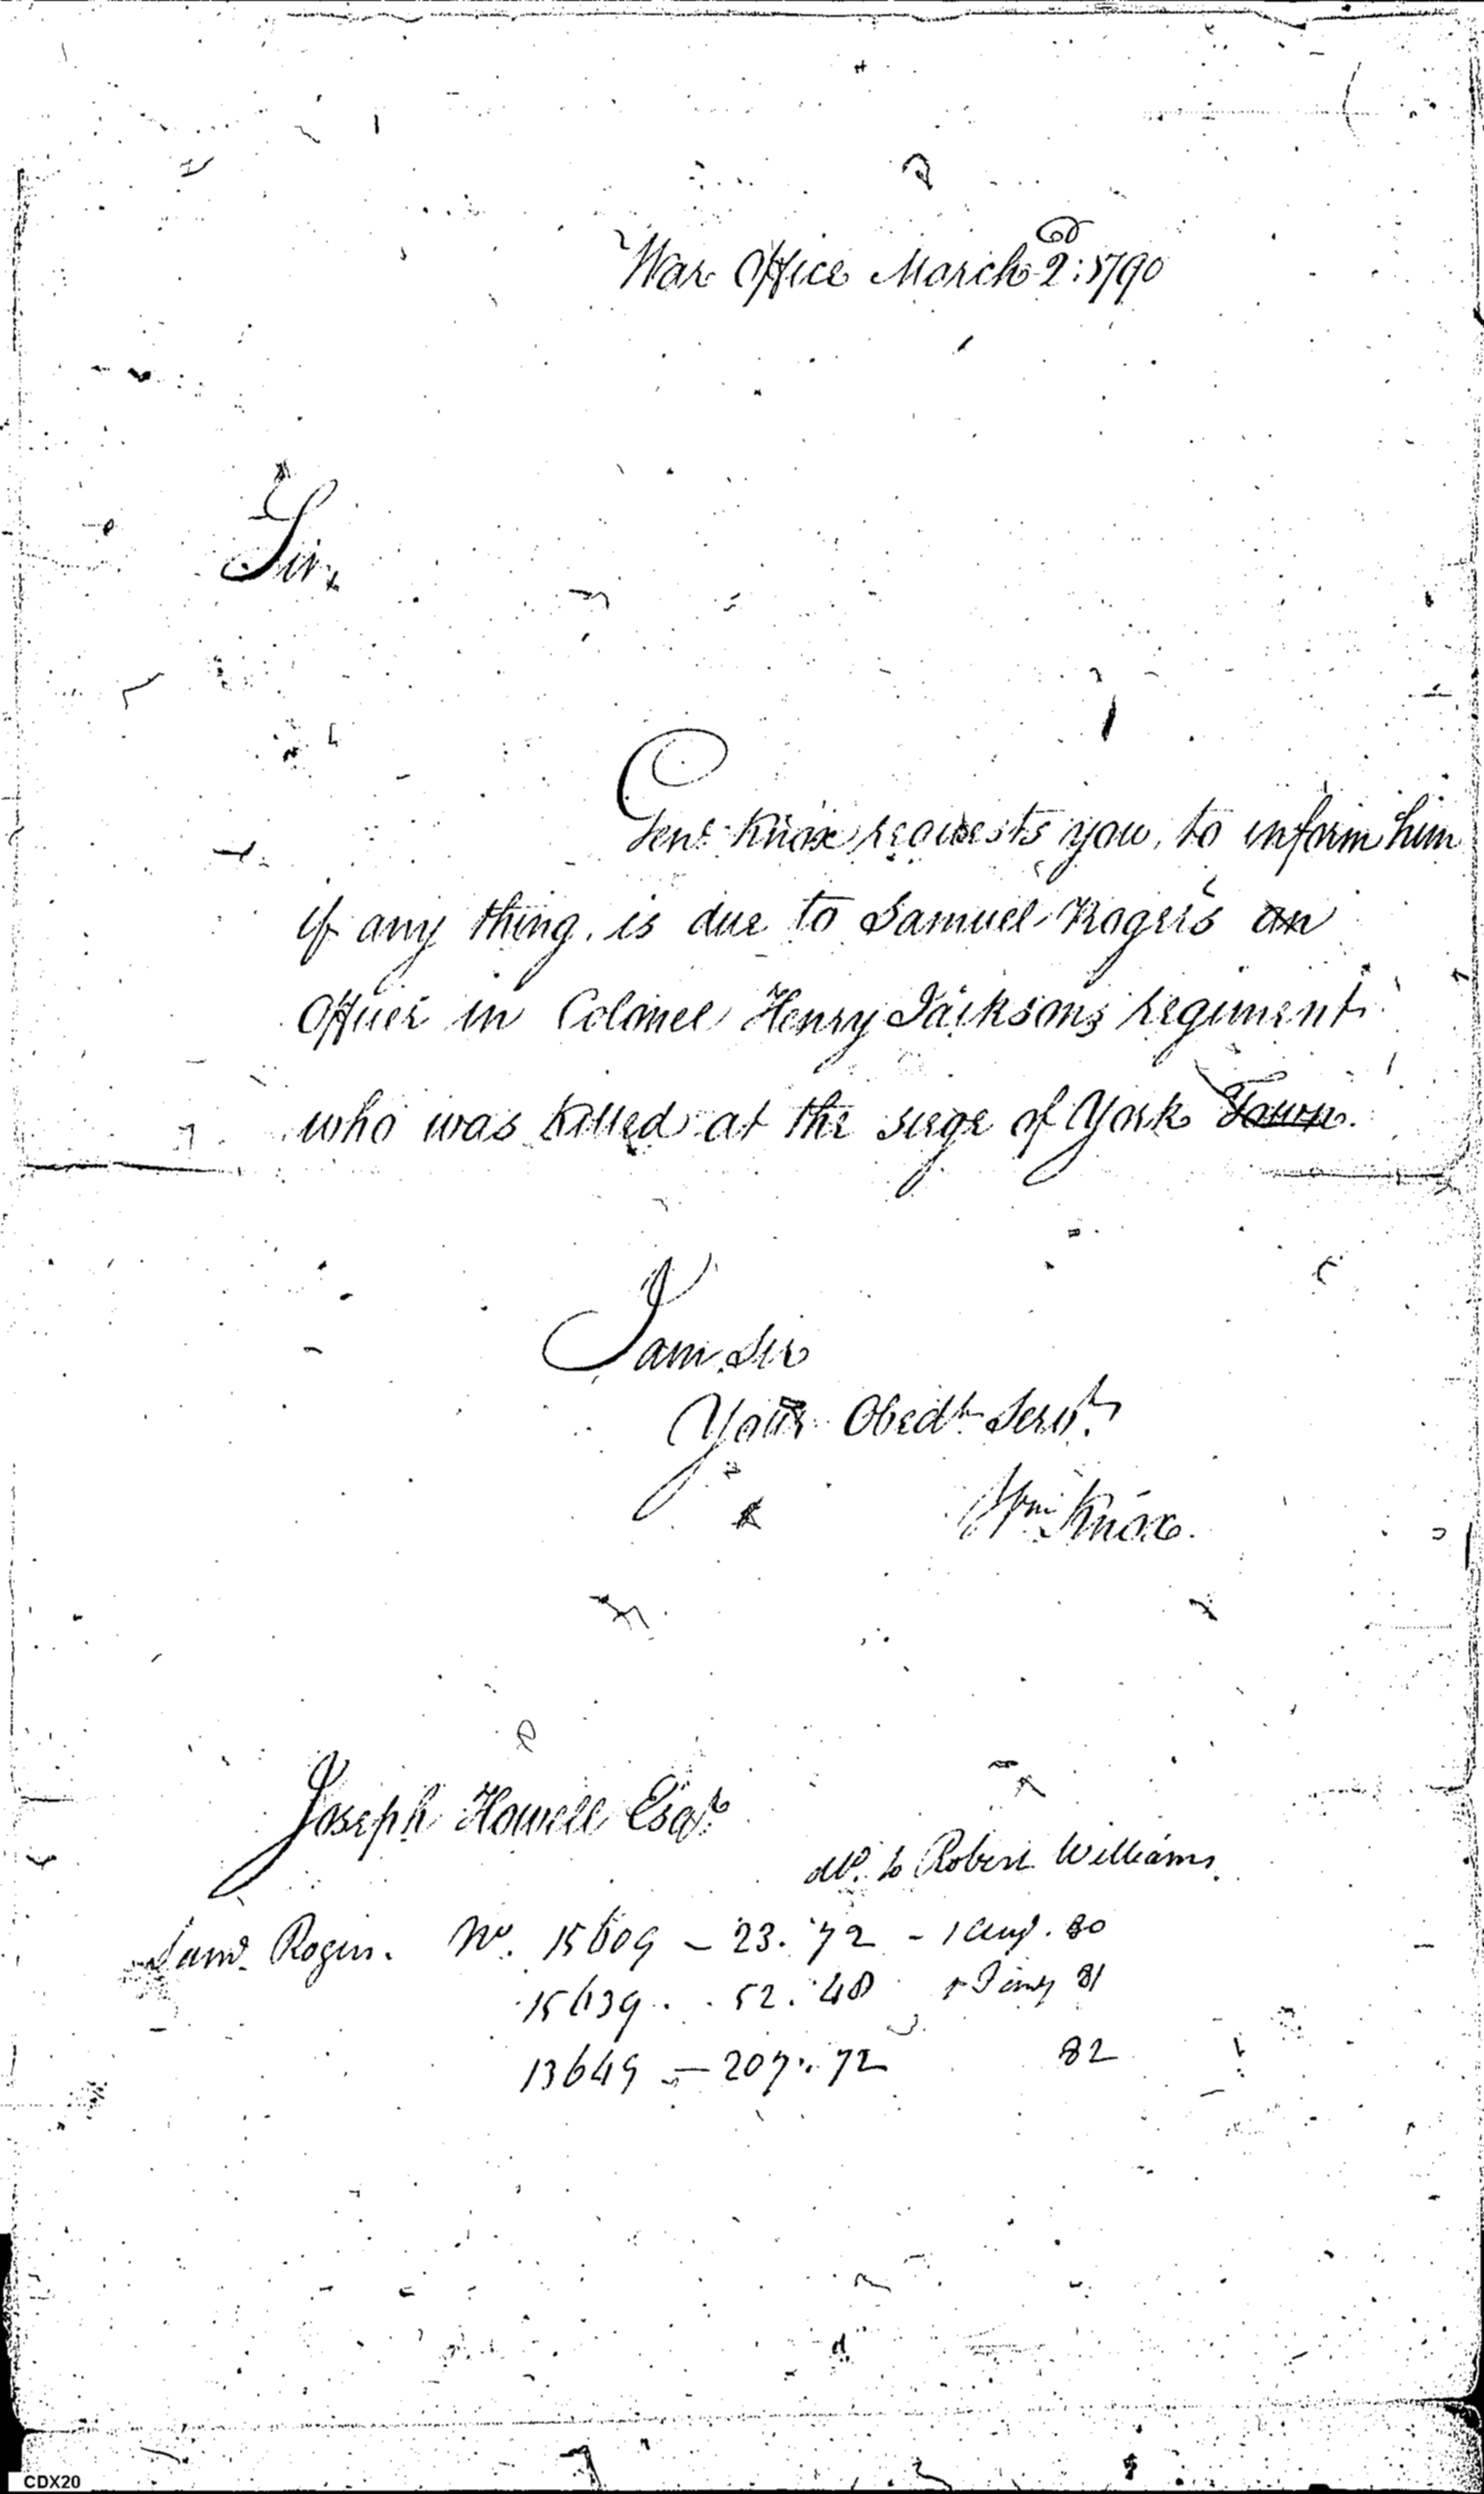 War Office March 2d: 1790
Sir,
Genl Knox requests you, to inform him
if any thing, is due to Samuel Rogers an
Officer in Colonel Henry Jacksons regiment
who was killed at the siege of York Town.
I am Sir
Your Obedt Servt
Wm Knox.
Joseph Howell Esqr
dd. to Robert Williams.
Saml Rogers. No. 15609 - 23. 72 - 1 Augt. 80
15639 . . 52. 48 1 Jany 81
13649 - 207. 72 82
CDX20